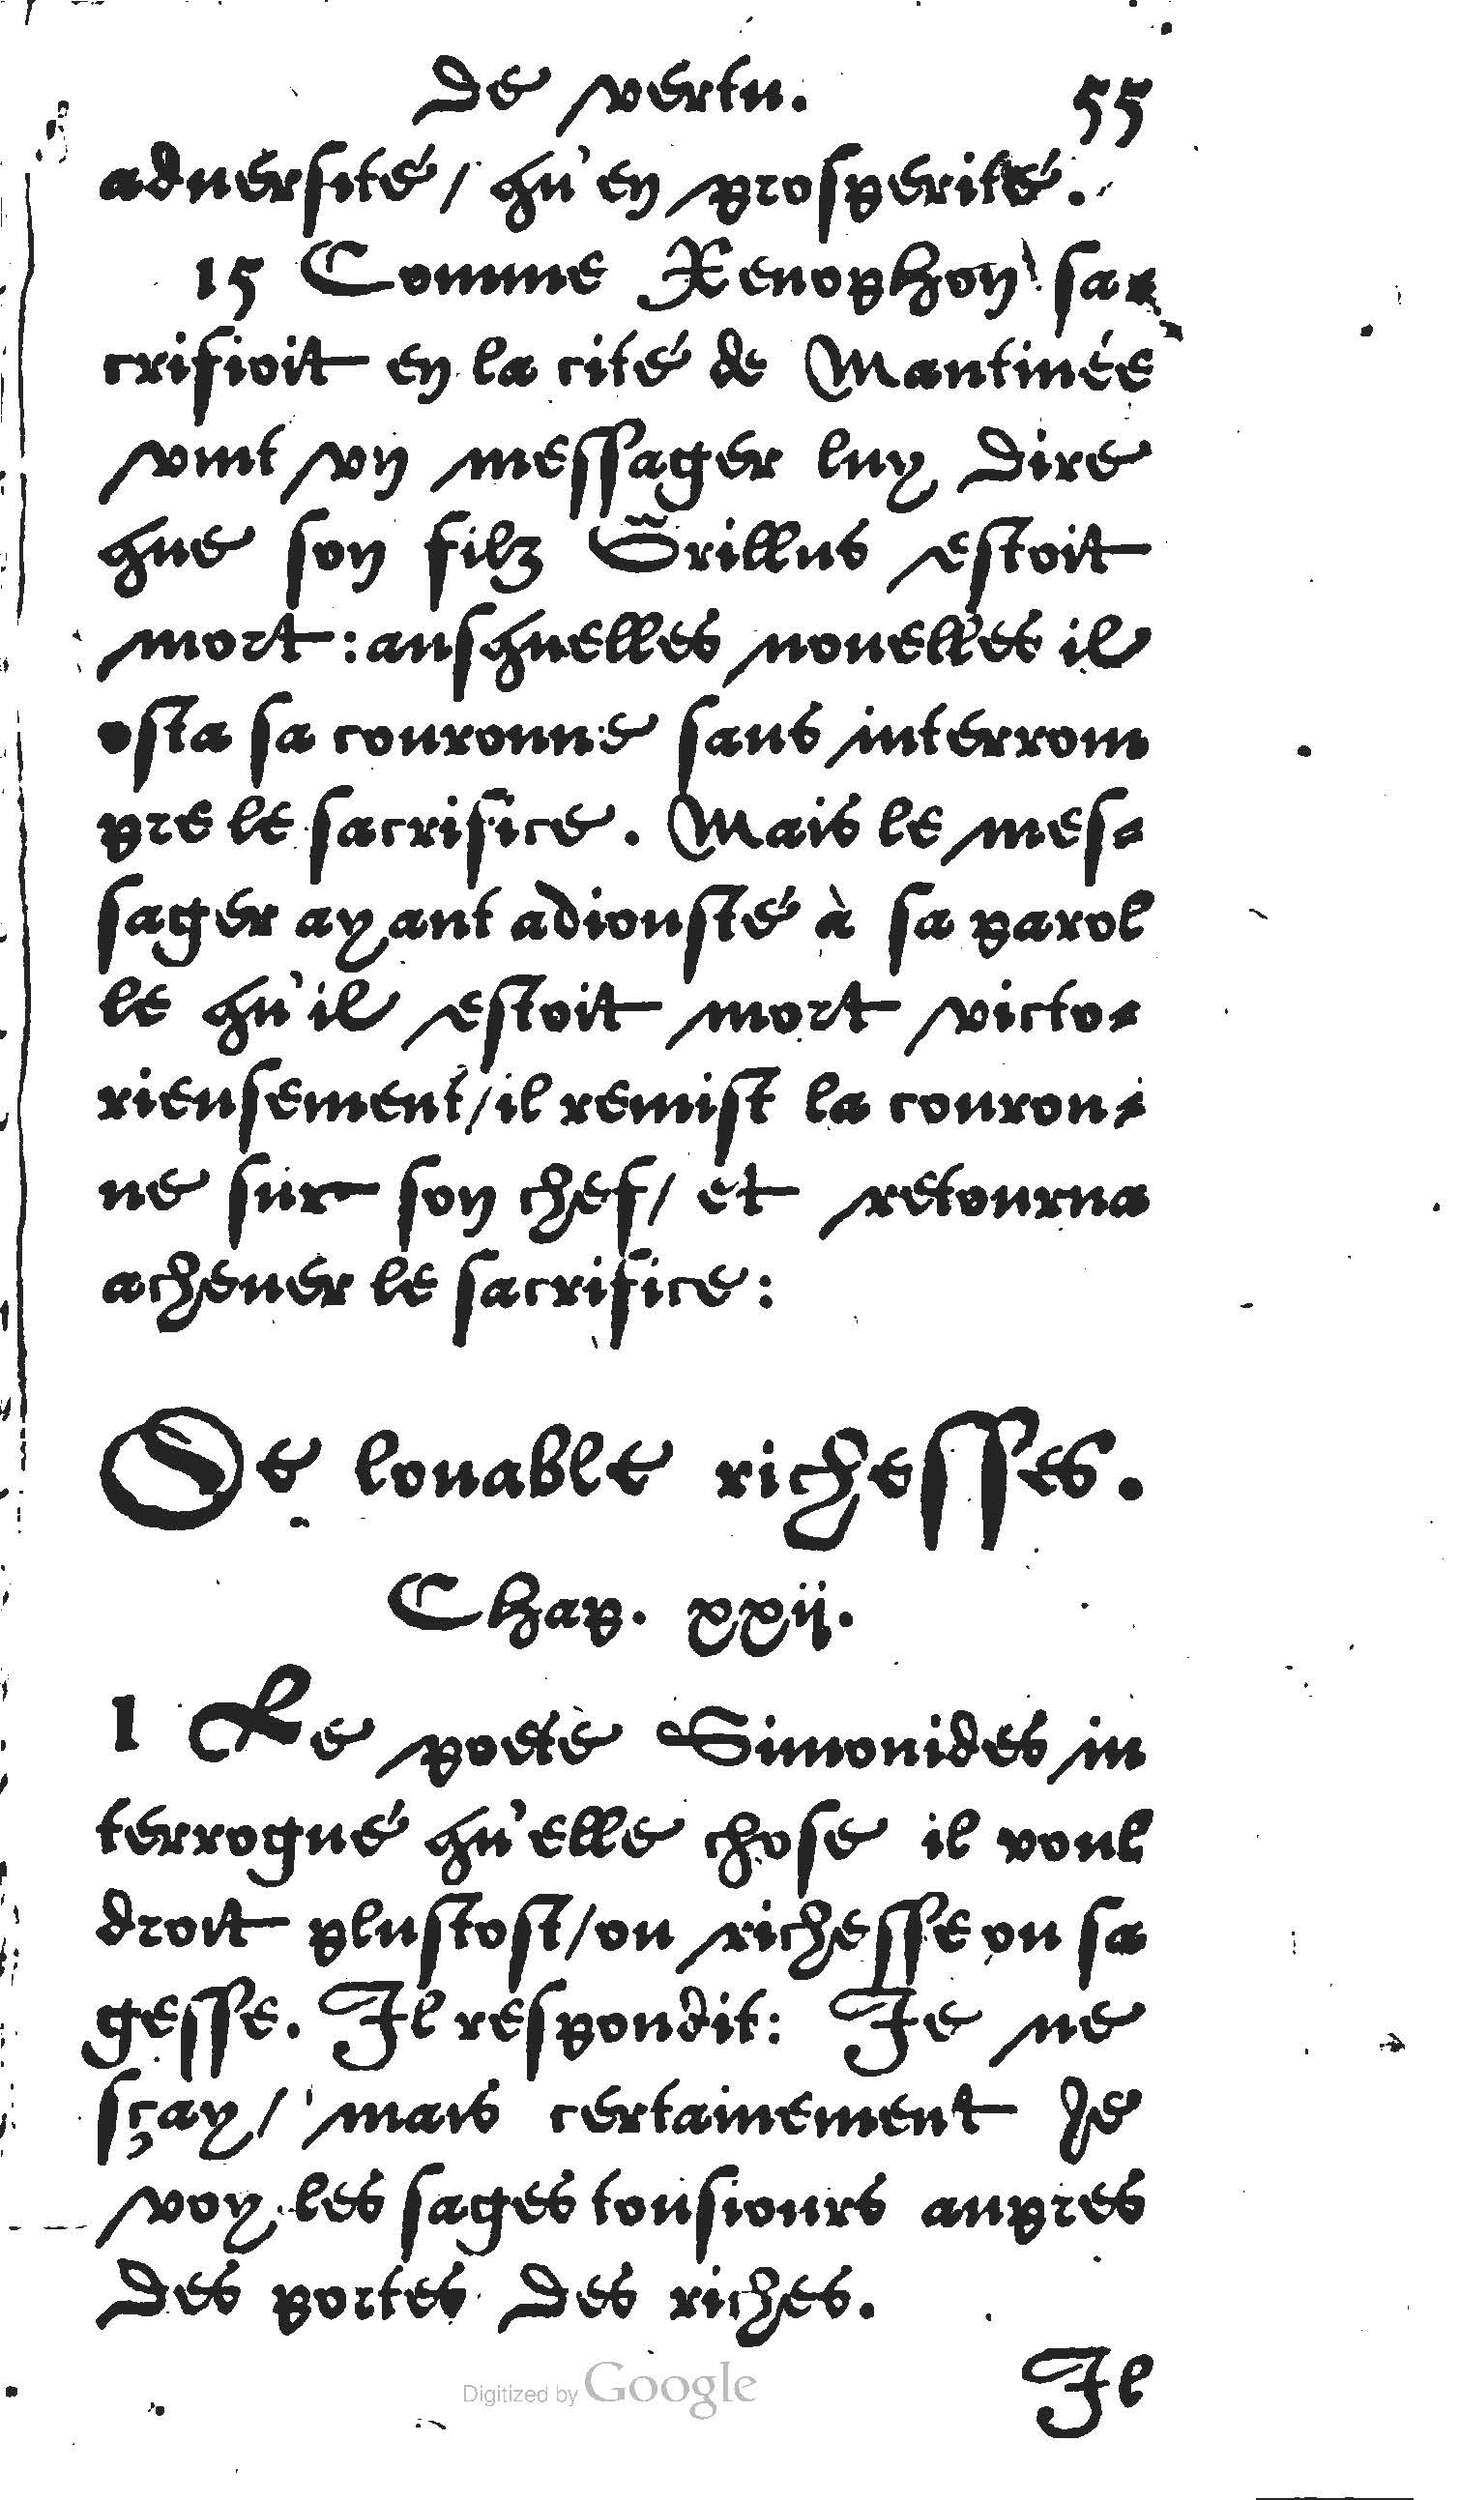 de vertu. 55
aduersité/ qu'en prosperité.
15 Comme Xenophon sa-
crifioit en la cité de Mantinée
vint vn messager luy dire
que son filz Grillus estoit
mort: ausquelles nouelles il
osta sa couronne sans interrom
pre le sacrifice. Mais le mes-
sager ayant adiousté à sa parol
le qu'il estoit mort victo-
rieusement/ il remist la couron-
ne sur son chef/ et retourna
acheuer le sacrifice:
De louable richesses.
Chap. xxij.
1 Le poete Simonides in
terrogué qu'elle chose il voul
droit plustost/ ou richesse ou sa
gesse. Il respondit: Je ne
sçay/ mais certainement Je
voy les sages tousiours aupres
des portes des riches.
Il
Digitized by Google